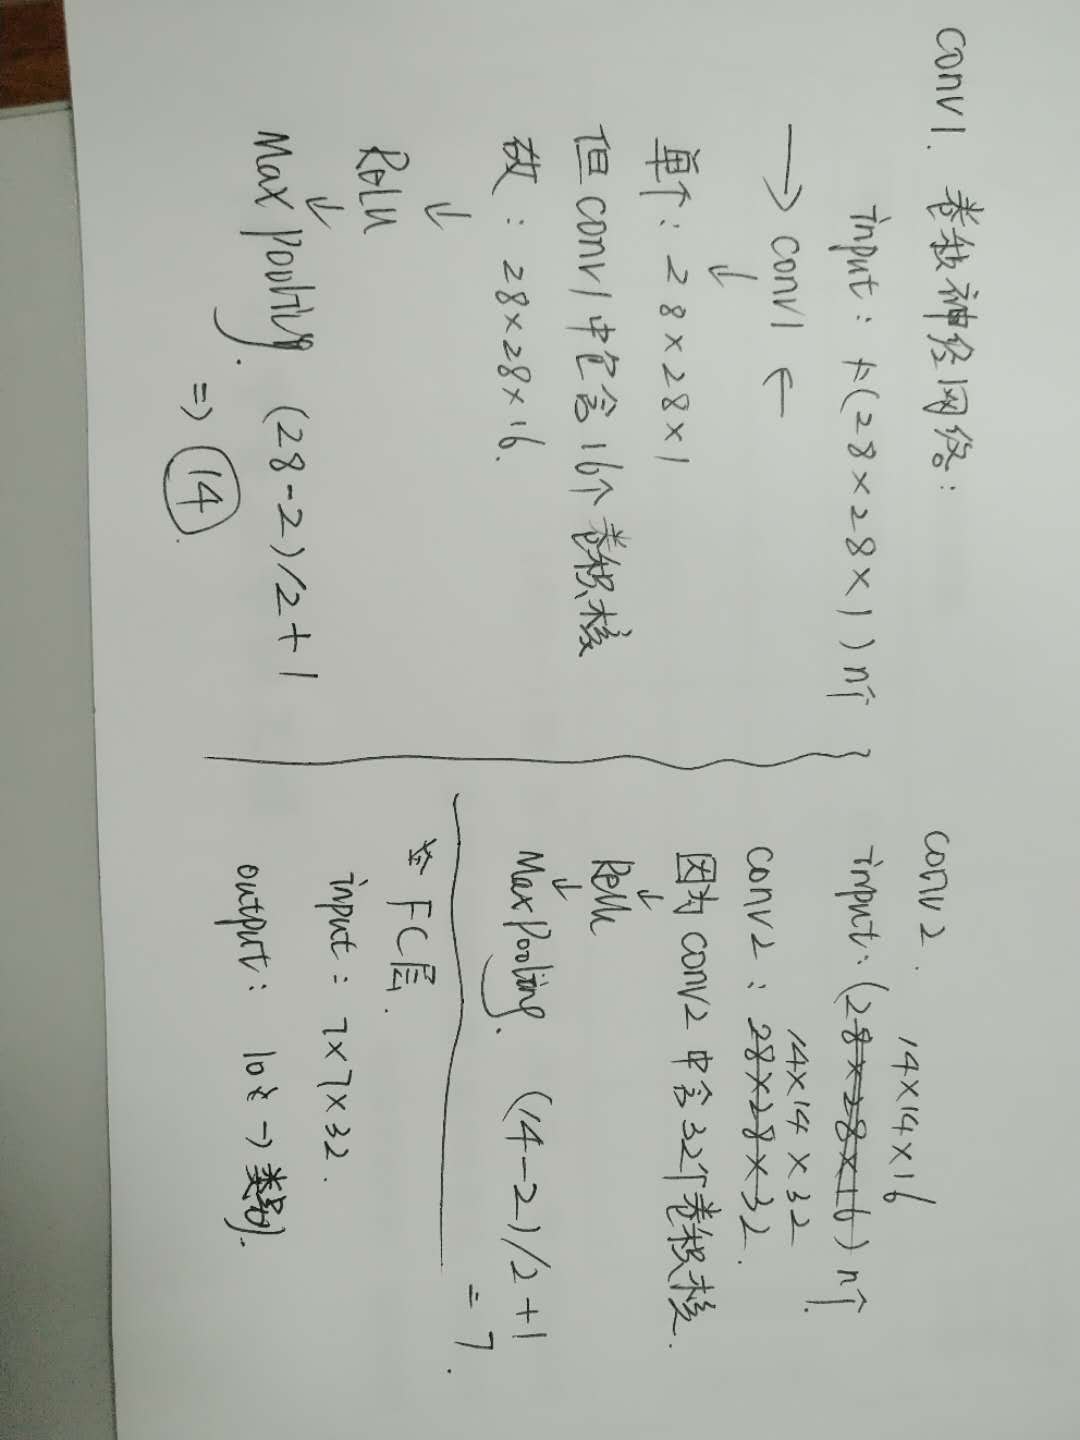 conv1. 卷积神经网络:
input: x(28×28×1)n个
→ conv1 ←
↓
单个: 28×28×1
但conv1中包含16个卷积核
故: 28×28×16.
↓
Relu
↓
Max pooling. (28-2)/2+1
=> 14
conv2.
14×14×16
input: (28×28×16)n个
14×14×32
conv2: 28×28×32.
因为conv2中含32个卷积核.
↓
Relu
↓
Max Pooling. (14-2)/2+1
= 7.
FC层.
input: 7×7×32.
output: 10 → 类别.